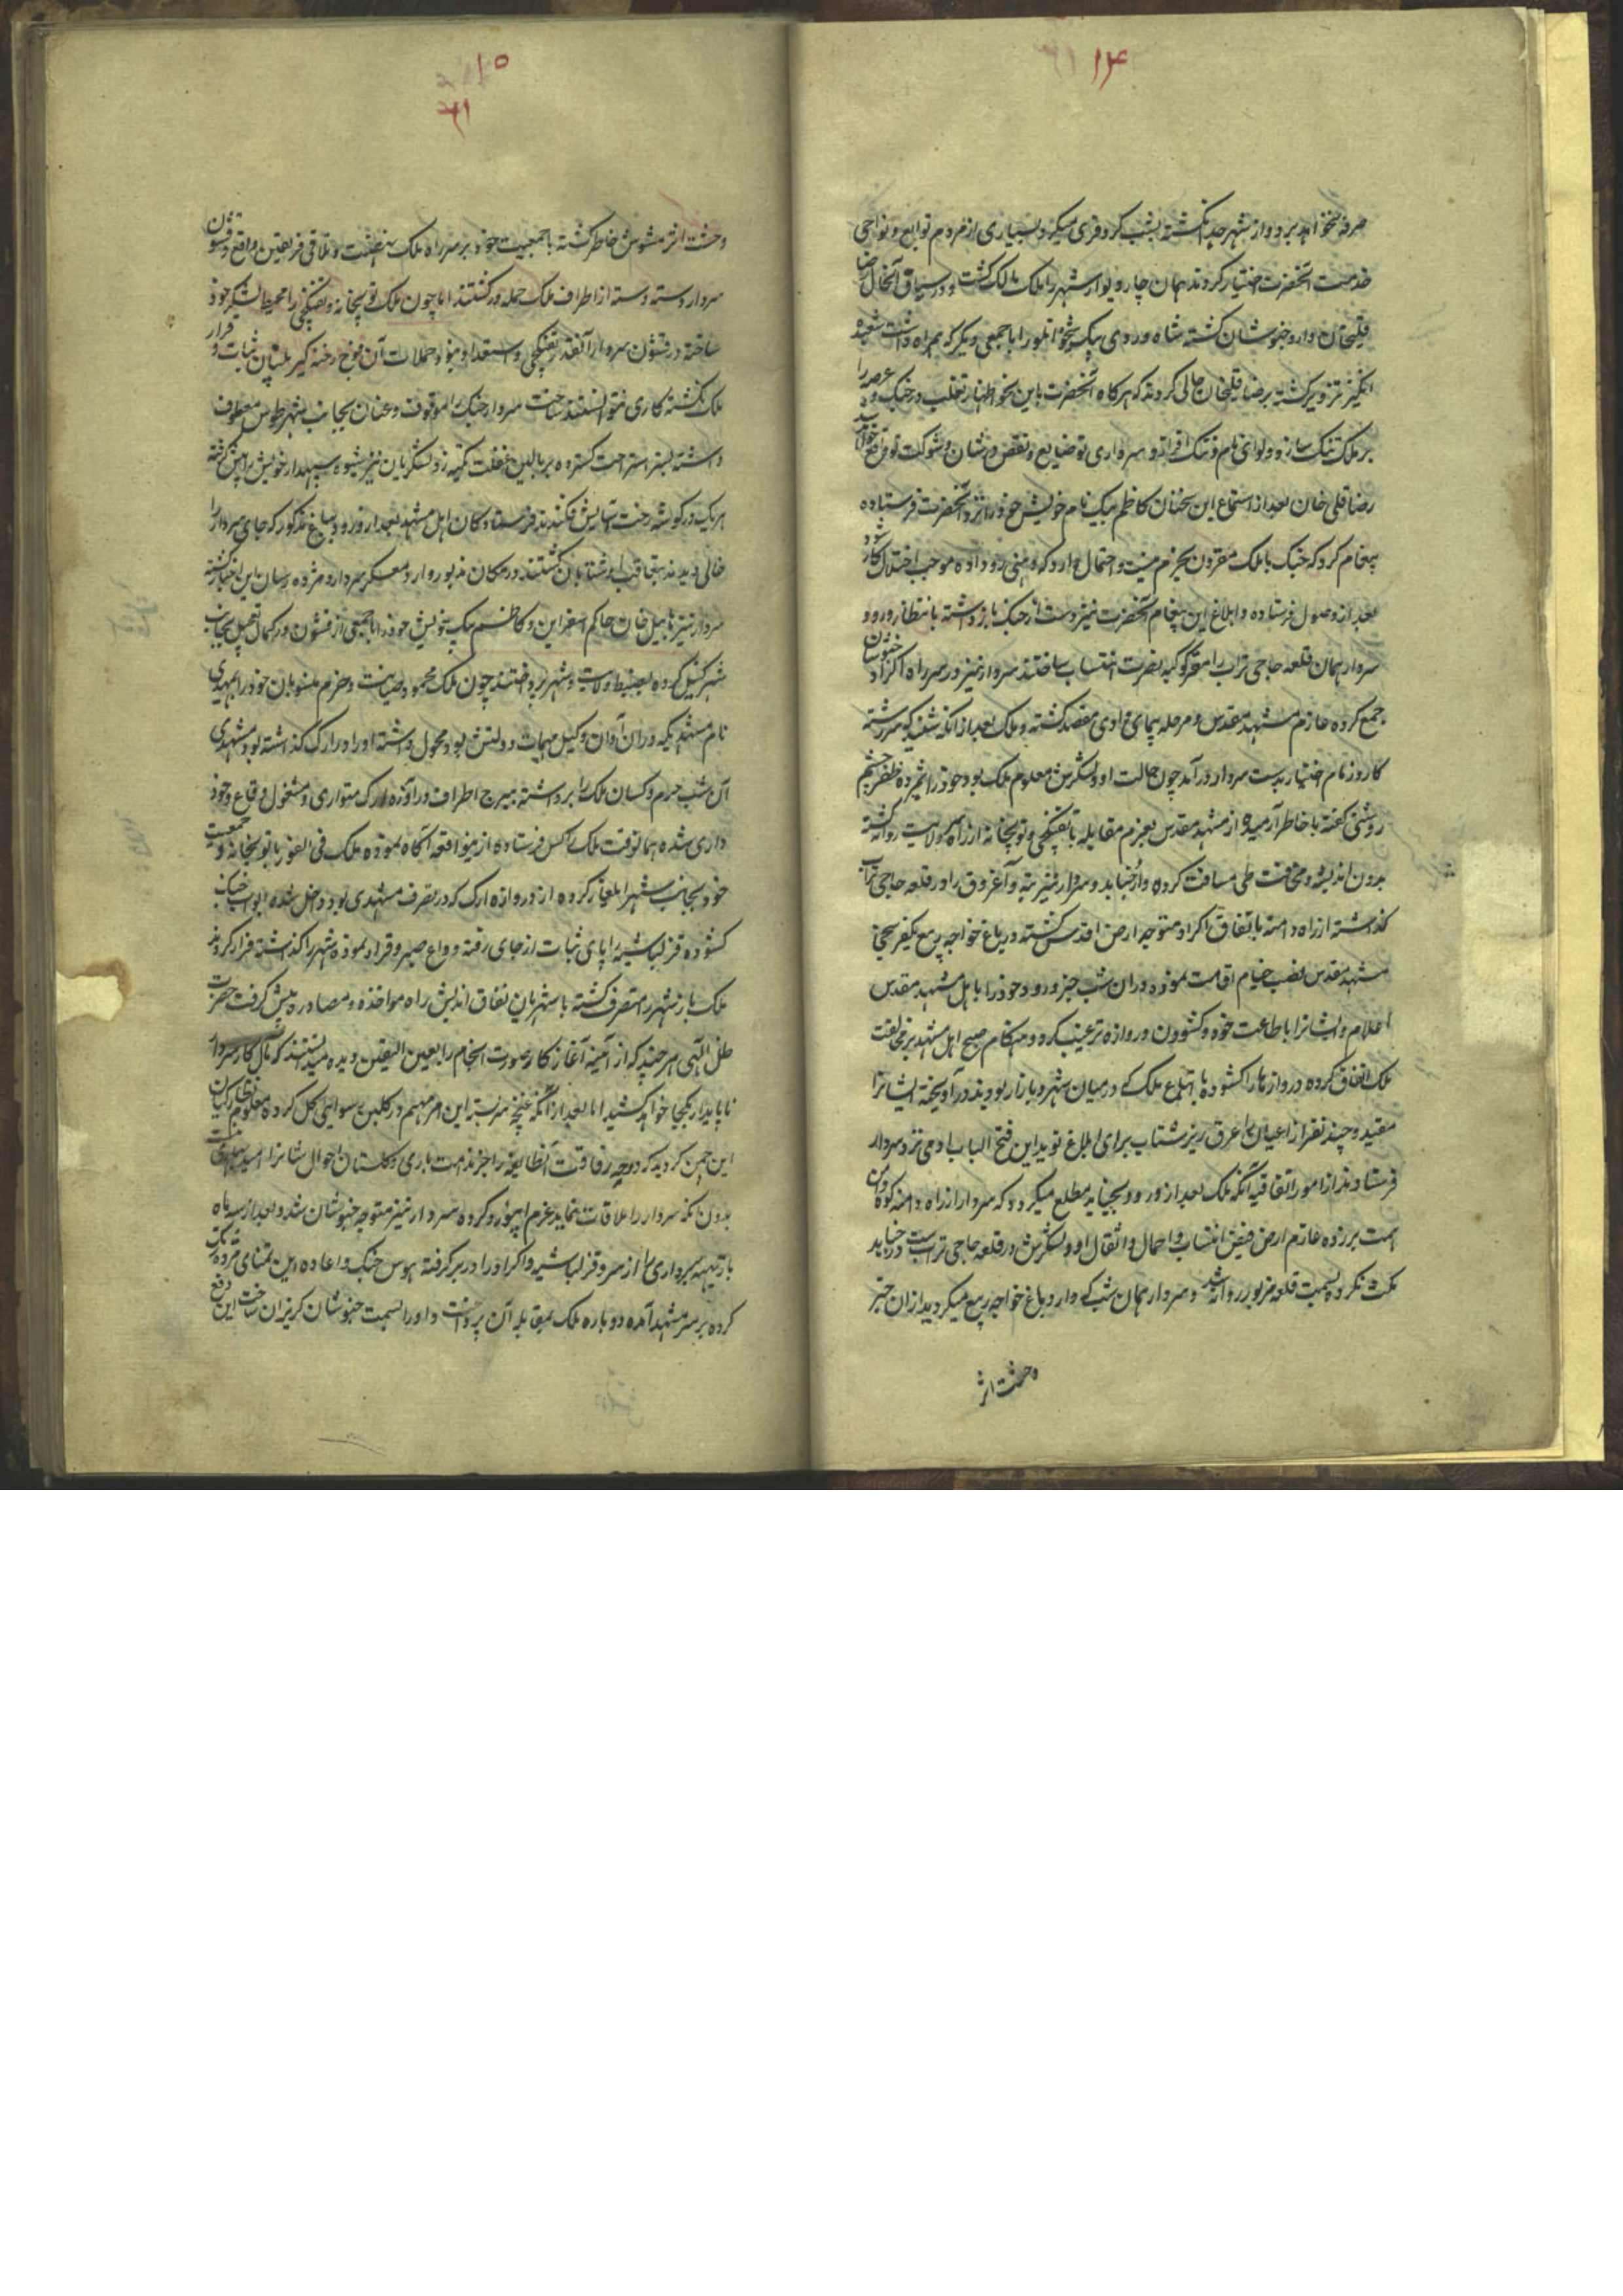 ۱۴
صرفه نخواهد برد و از شهر جدا نگشته بشب کر و فری میکرد بسیاری از مردم توابع و نواحی
خدمت آنحضرت اختیار کردند همان چار دیوار شهر را ملک مالک گشت و در سیاق آنحال رضا
قلیخان وارد خبوشان گشته شاه وردی بیک شیخوانلو را با جمعی دیگر که همراه داشت شعبده
انگیز تزویر گشته برضا قلیخان حالی کردند که هرگاه آنحضرت باین نحو اظهار تغلب در جنک و عرصه را
بر ملک تنک سازد و لوای نام و ننک افرازد سرداری تو ضایع و نقص در شان و شوکت تو واقع خواهد
رضا قلی خان بعد از استماع این سخنان کاظم بیک نام خویش خود را نزد آنحضرت فرستاده
پیغام کرد که جنک با ملک مقرون بحزم نیست و احتمال دارد که وهنی رو داده موجب اختلال کار شود
بعد از وصول فرستاده و ابلاغ این پیغام آنحضرت نیز دست از جنک باز داشته بانتظار ورود
سردار همان قلعه حاجی تراب را مقر کوکبه نصرت انتساب ساختند سردار نیز در سر راه اکراد خبوشان
جمع کرده عازم مشهد مقدس و مرحله پیمای وادی مقصد گشته و ملک بعد از آنکه شنید که سررشته
کار و زمام اختیار بدست سردار در آمد چون حالت او و لشکرش معلوم ملک بود خود را مژده ظفر چشم
روشنی گفته با خاطر آرمیده از مشهد مقدس بعزم مقابله با تفنکچی و توپخانه از راه ولایت روانه گشته
بدون اندیشه و مخافت طی مسافت کرده وارد خنابد و سردار نیز بنه و آغروق را در قلعه حاجی تراب
گذاشته از راه دامنه باتفاق اکراد متوجه ارض اقدس گشته در باغ خواجه ربیع یکفرسخی
مشهد مقدس نصب خیام اقامت نموده در آن شب خبر ورود خود را باهل مشهد مقدس
اعلام و ایشانرا باطاعت خود و کشودن دروازه ترغیب کرد و هنگام صبح اهل مشهد بر مخالفت
ملک اتفاق کرده دروازها را کشوده با اتباع ملک که در میان شهر و بازار بودند در آویخته ایشانرا
مقید و چند نفر از اعیان را عرق ریز شتاب برای ابلاغ نوید این فتح الباب او می نزد سردار
فرستادند از امور اتفاقیه آنکه ملک بعد از ورود بخنابد مطلع میکردد که سردار از راه دامنه کوه
همت برزده عازم ارض فیض انتساب و احمال و اثقال او و لشکرش در قلعه حاجی تراب است در خنابد
مکث نکرده بسمت قلعه مزبور روانه شد و سردار همان شب که وارد باغ خواجه ربیع میکردید از آن خبر
وحشت اثر
۱۵
وحشت اثر مشوش خاطر گشته با جمعیت خود بر سر راه ملک شتافت و تلاقی فریقین واقع و قشون
سردار دسته دسته از اطراف ملک حمله ور گشتند اما چون ملک توپخانه و تفنکچی را محیط لشکر خود
ساخته در قشون سردار آنقدر تفنکچی و استعداد نبود و حملات آن فوج رخنه گیر بنیان ثبات و قرار
ملک نگشته کاری نتوانستند ساخت سردار جنک را موقوف و عنان بجانب شهر طوس معطوف
داشته بستر استراحت گسترده بر بالین غفلت تکیه زد و لشکریان نیز شیوه سپهدار خویش را پیش گرفته
هر یک در گوشه رخت آسایش فکندند فرستادگان اهل مشهد بعد از ورود بباغ مذکور که جای سردار را
خالی دیدند بتعاقب او شتابان گشتند در مکان مزبور وارد معسکر سردار و مژده رسان این اخبار گشته
سردار نیز نابیل خان حاکم اسفراین و کاظم بیک خویش خود را با جمعی از قشون در کمال تعجیل بجانب
شهر گسیل کرده بضبط ولایت و شهر پرداختند چون ملک محمود صیانت و حزم منسوبان خود را بمهدی
نام مشهدی که در آن آوان وکیل مهمات دولتش بود محول داشته او را در ارک گذاشته بود مشهدی
آن شب حرم و کسان ملک را برداشته ببرج اطراف دروازه ارک متواری و مشغول دفاع و خود
داری شده همانوقت ملک را کس فرستاده ازینواقعه آگاه نموده ملک فی الفور با توپخانه و جمعیت
خود بجانب شهر ایلغار کرده از دروازه ارک که در تصرف مشهدی بود داخل شده ابواب جنک
کشوده قزلباشیه را پای ثبات از جای رفته وداع صبر و قرار نموده شهر را گذاشته فرار کردند
ملک باز شهر را متصرف گشته با شهریان نفاق اندیش راه مواخذه و مصادره پیش گرفت حضرت
ظل الهی هر چند که از آئینه آغاز کار صورت انجام را بعین الیقین دیده میدانستند که مآل کار سردار
ناپایدار بکجا خواهد کشید اما بعد از آنکه غنچه سربسته این امر مبهم در گلبن رسوائی گل کرده معلوم نظارگیان
این چمن گردید که دوحه رفاقت آنطایفه را جز ندامت باری و گلستان احوال شانرا امید بهاری نیست
بدون آنکه سردار را ملاقات نماید عزم ابیورد کرده سردار نیز متوجه خبوشان شد و بعد از سه ماه
باز تهیه سرداری را از سر و قزلباشیه و اکراد را در بر گرفته هوس جنک و اعاده این تمنای نزدیک
کرده بر سر مشهد آمده دوباره ملک بمقابله آن پرداخت و او را بسمت خبوشان گریزان ساخت این دفع